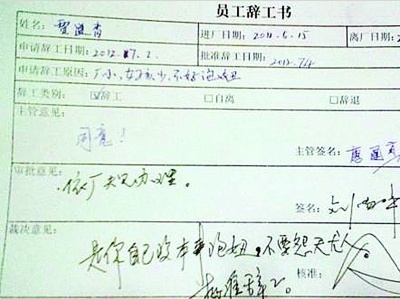 员工辞工书
姓名: 进厂日期: 2011.5.15 离厂日期: 2
申请辞工日期: 2012.7.2. 批准辞工日期: 2012.7.4
申请辞工原因: 厂小,女孩少,不好泡妞
辞工类别: ☑辞工 □自离 □辞退
主管意见:
同意!
主管签名:
审批意见:
依厂规办理。
签名:
裁决意见:
是你自己没本事泡妞,不要怨天尤人
批准辞工。 核准: